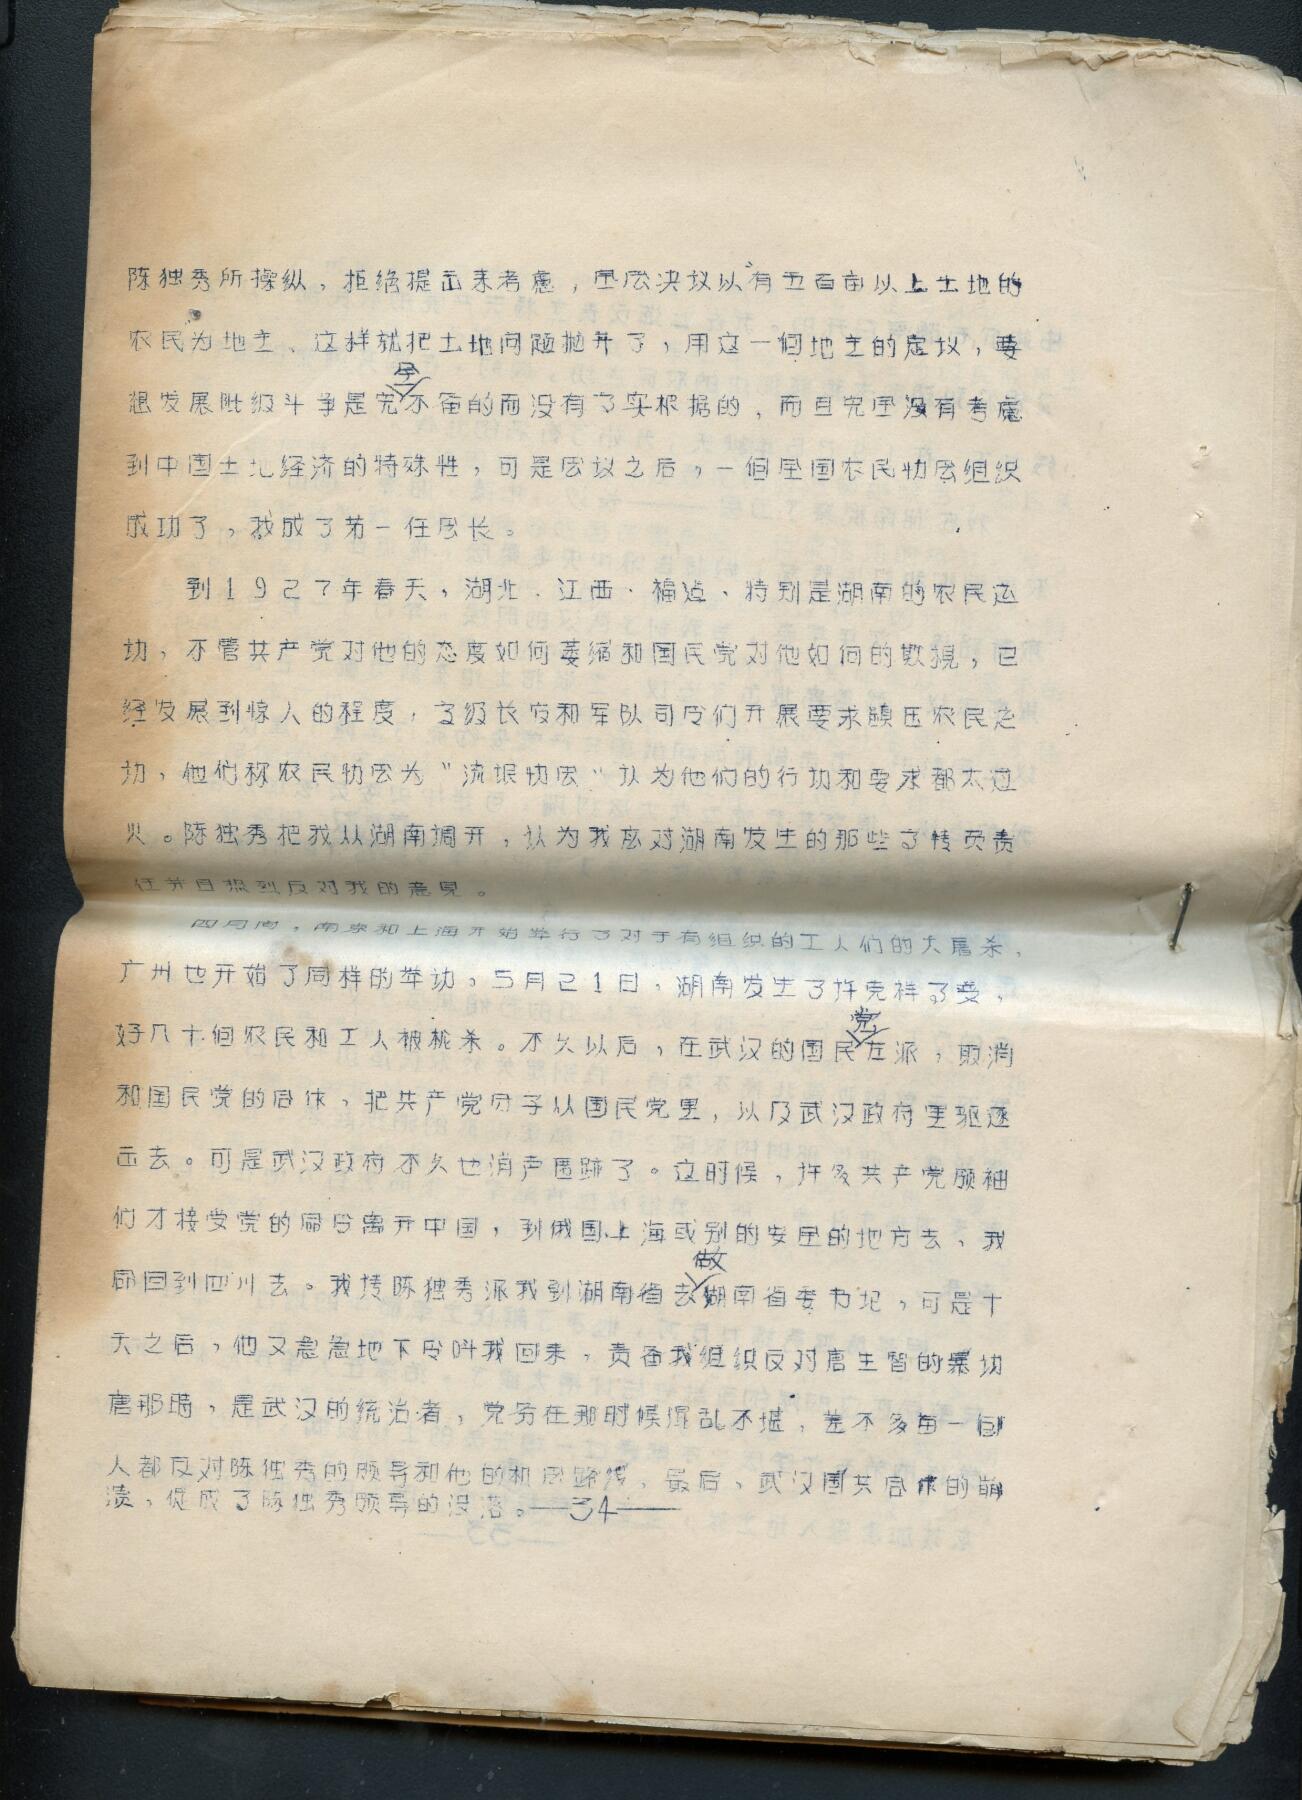 陈独秀所操纵，拒绝提出来考虑，全会决议以有五百亩以上土地的
农民为地主、这样就把土地问题抛开了，用这一个地主的定议，要
想发展阶级斗争是完全不备的而没有事实根据的，而且完全没有考虑
到中国土地经济的特殊性，可是会议之后，一个全国农民协会组织
成功了，我成了第一任会长。
到1927年春天，湖北、江西、福建、特别是湖南的农民运
动，不管共产党对他的态度如何萎缩和国民党对他如何的欺视，已
经发展到惊人的程度，高级长官和军队司令们开展要求镇压农民运
动，他们称农民协会为“流氓协会”认为他们的行动和要求都太过
火。陈独秀把我从湖南调开，认为我应对湖南发生的那些事转负责
任并且热烈反对我的意见。
四月间，南京和上海开始举行了对于有组织的工人们的大屠杀，
广州也开始了同样的举动，5月21日，湖南发生了许克祥事变，
好几十个农民和工人被枪杀。不久以后，在武汉的国民党左派，取消
和国民党的合作，把共产党分子从国民党里，以及武汉政府里驱逐
出去。可是武汉政府不久也消声匿跡了。这时候，许多共产党领袖
们才接受党的命令离开中国，到俄国上海或别的安全的地方去、我
命回到四川去。我找陈独秀派我到湖南省去做湖南省委书记，可是十
天之后，他又急急地下令叫我回来，责备我组织反对唐生智的暴动
唐那時，是武汉的统治者，党务在那时候混乱不堪，差不多每一个
人都反对陈独秀的领导和他的机会路线，最后，武汉国共合作的崩
溃，促成了陈独秀领导的没落。——34——